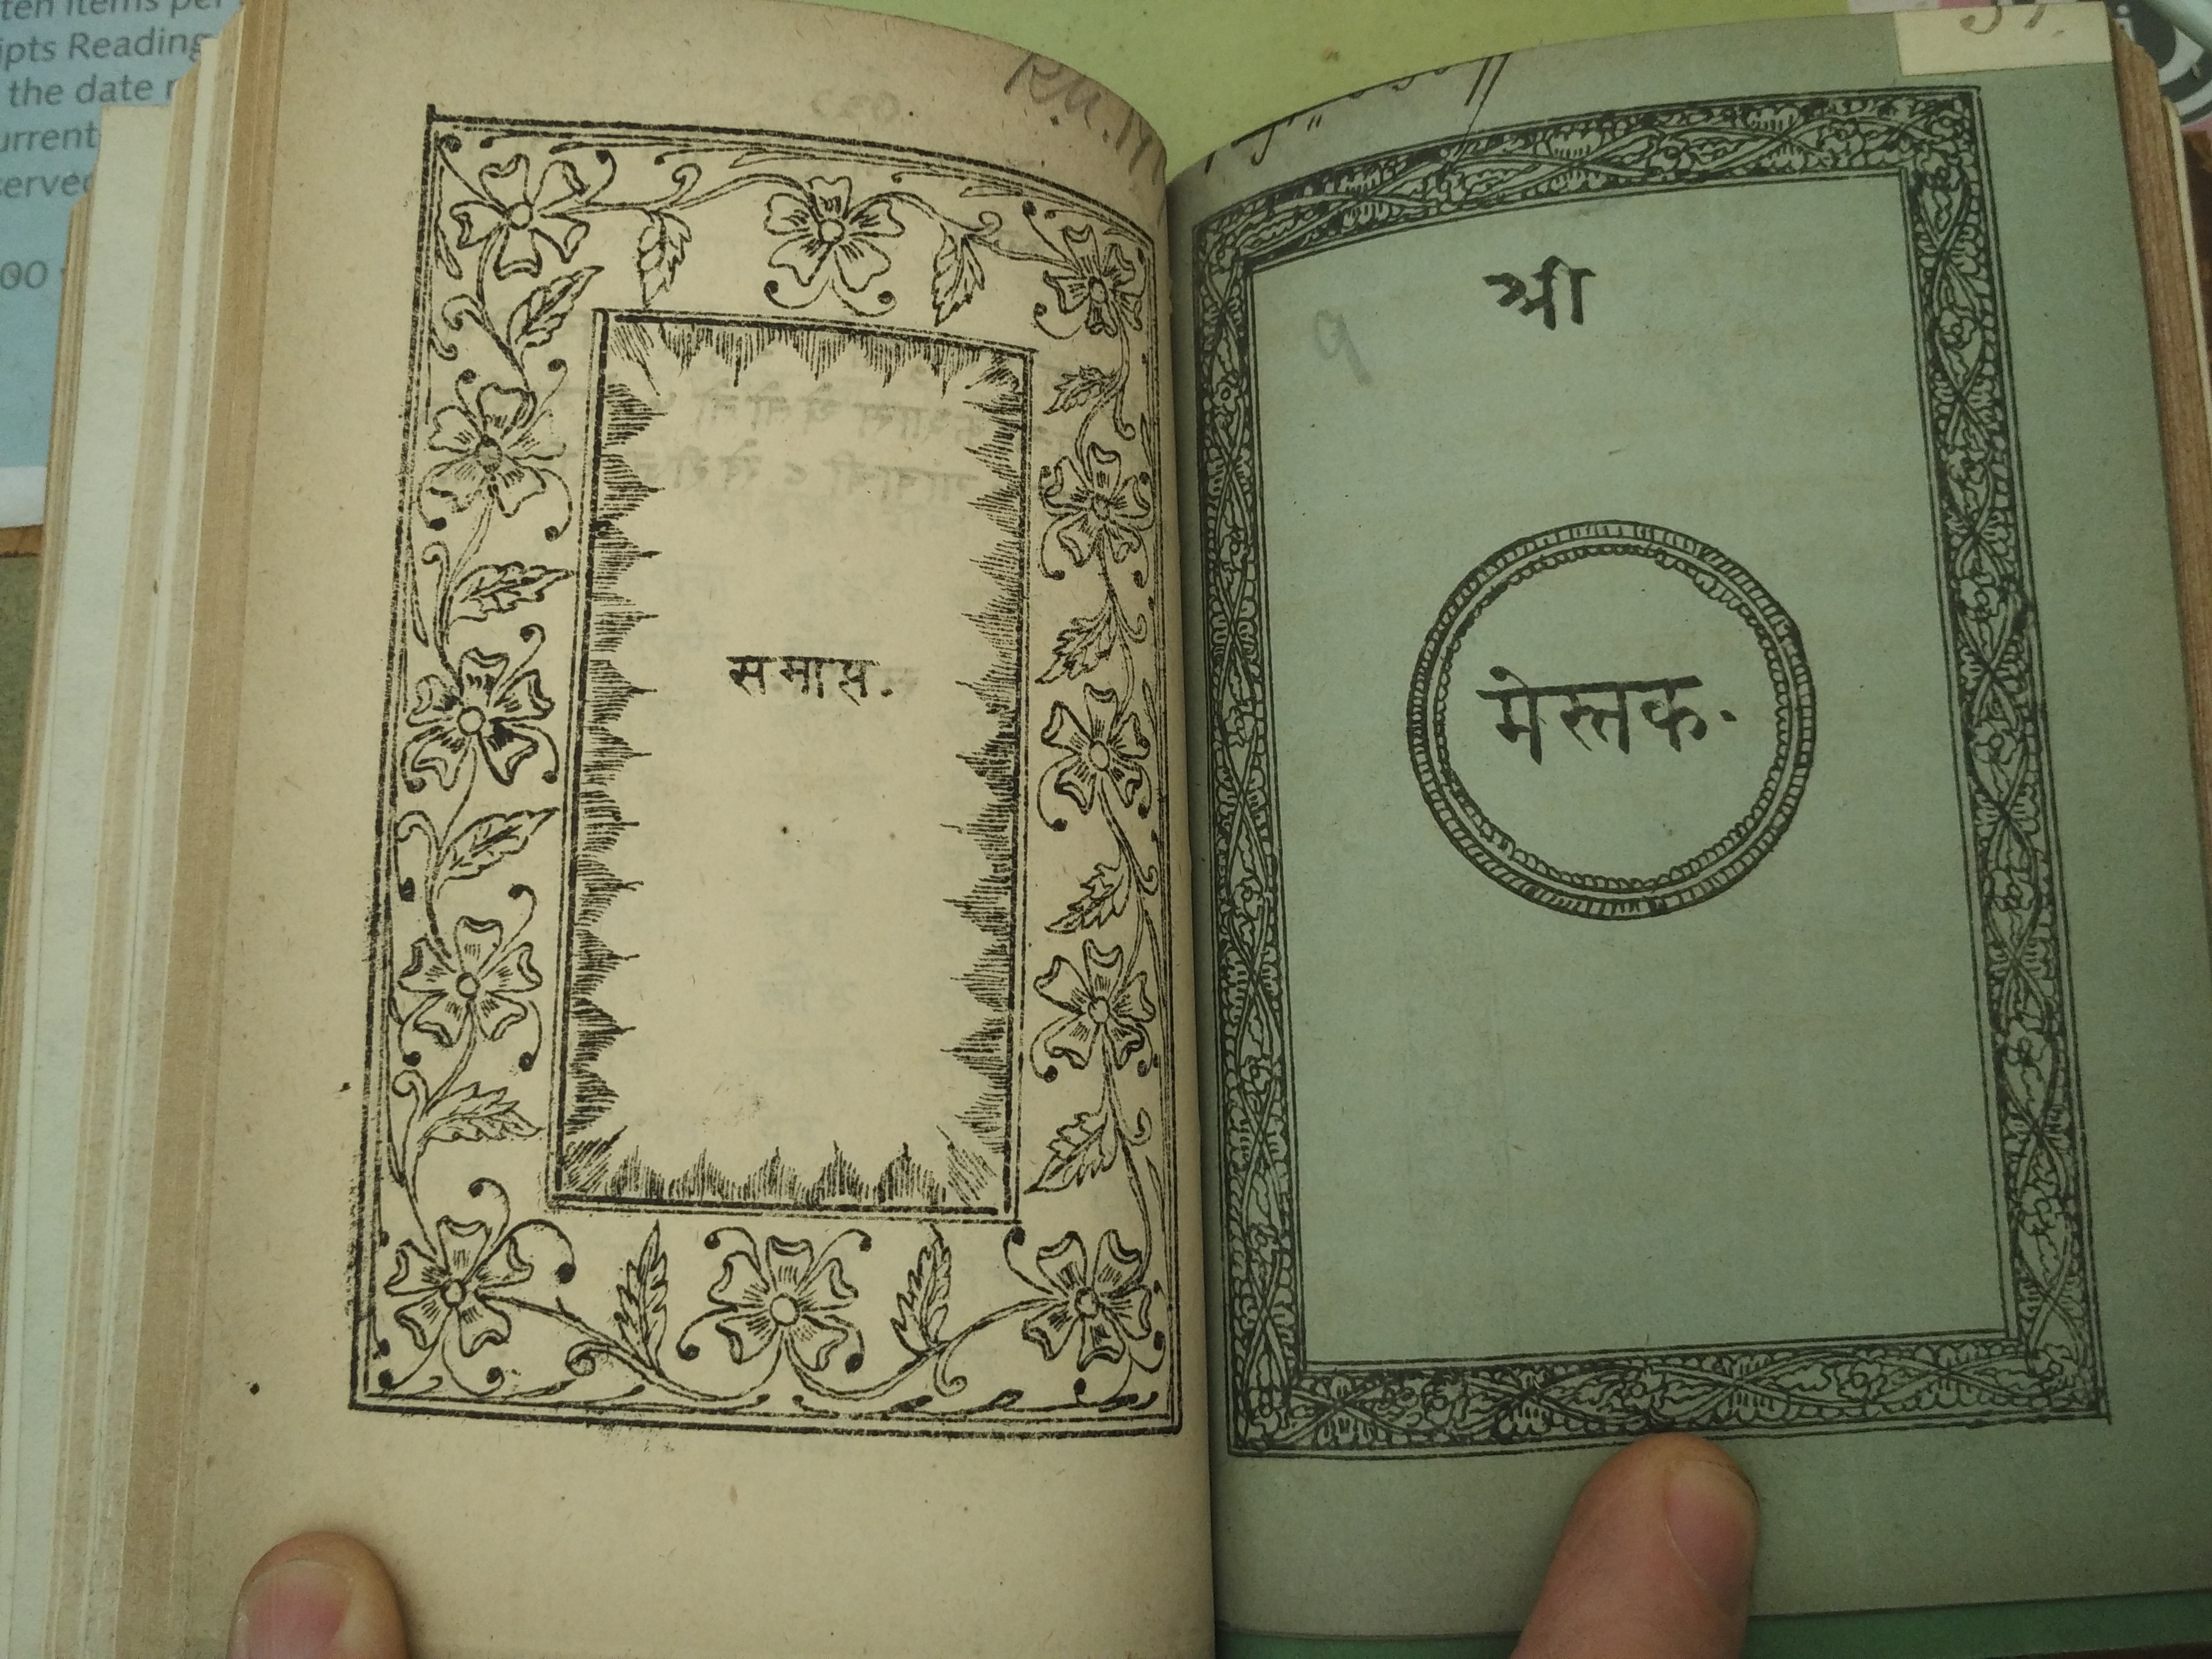 ten items per
ipts Reading
the date
urrent
served
00
समाप्त.
श्री
९
मेस्तक.